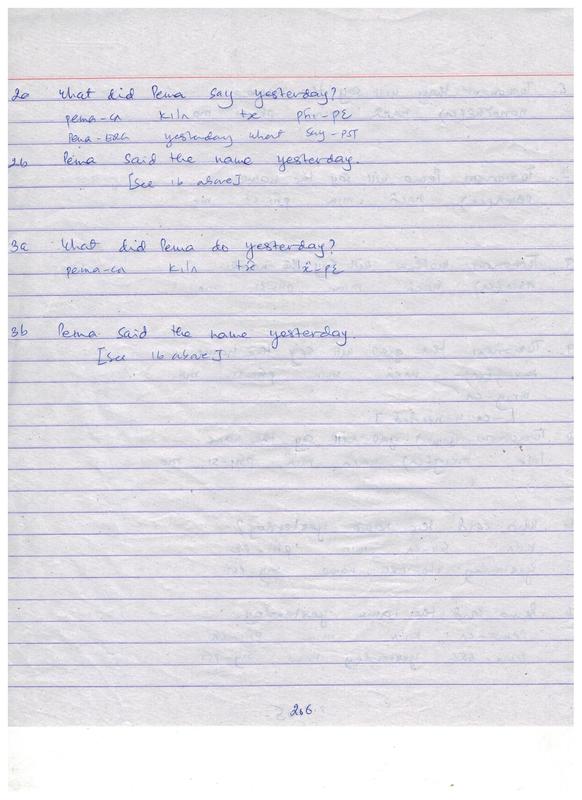 2a What did Pema say yesterday?
pema-cɑ kiln tɛ phi-pɛ
Pema-ERG yesterday what say-PST
2b Pema said the name yesterday.
[See 1b above]
3a What did Pema do yesterday?
pema-cɑ kiln
3b Pema said the name yesterday.
[See 1b above]
206